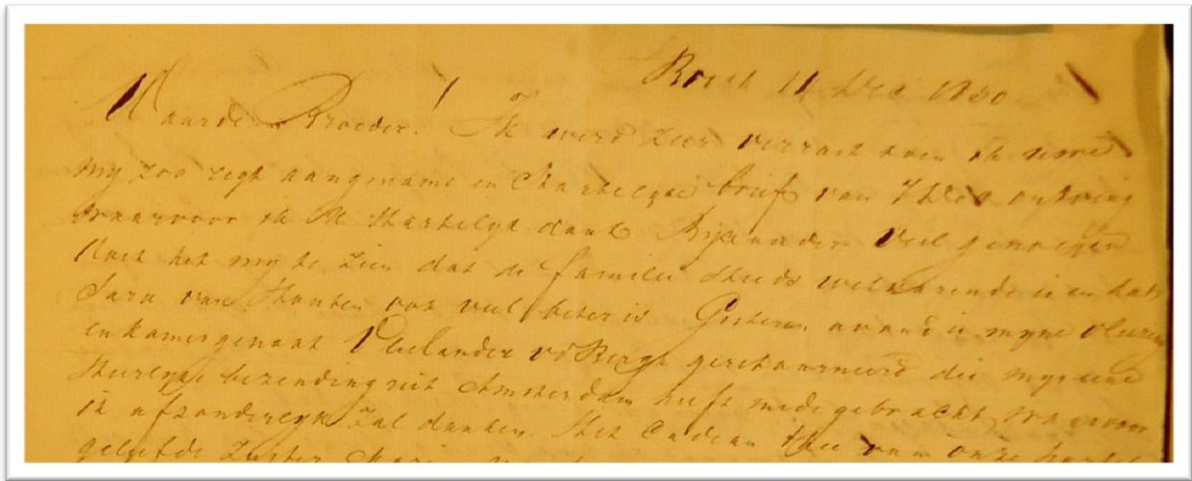 Bosch 11 Dec 1830
Waarde Broeder! Ik werd zeer verrast toen ik uwe
my zoo regt aangename en Hartelyke brief van 7 Dec ontving
waarvoor ik U Hartelyk dank Byzonder veel genoegen
doet het my te zien dat de familie steeds welvarende is en dat
Sara van Houten ook veel beter is. Gisteren avond is myne
en kamergenoot Vlielander vd Bergh geretourneerd die my eene
bezending uit Amsterdam heeft mede gebracht, waarvoor
ik afzonderlyk zal danken. Het Cadeau thee van onze
geliefde Zuster